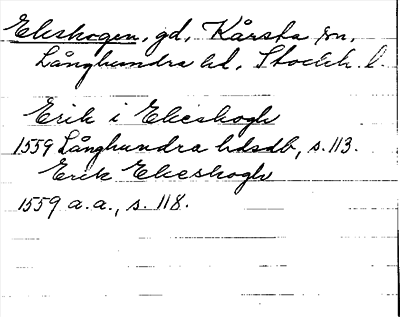 Ekeskogen, gd, Kårsta sn,
Långhundra hd, Stockh. l.
Erik i Ekeskogh
1559 Långhundra hdsdb, s. 113.
Erik Ekeskogh
1559 a.a., s. 118.